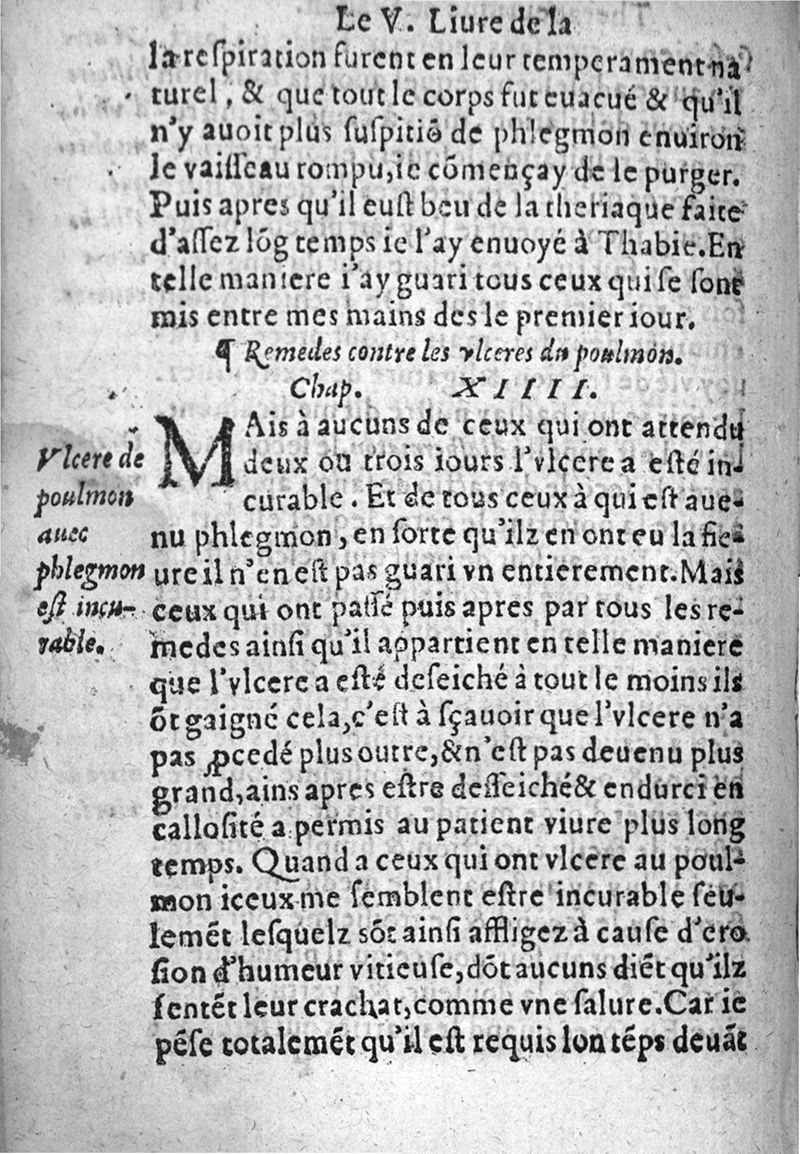 Le V. Liure de la
la respiration furent en leur temperament na
turel, & que tout le corps fut euacué & qu'il
n'y auoit plus suspitiõ de phlegmon enuiron
le vaisseau rompu, ie cõmençay de le purger.
Puis apres qu'il eust beu de la theriaque faite
d'assez lõg temps ie l'ay enuoyé à Thabie. En
telle maniere i'ay guari tous ceux qui se sont
mis entre mes mains des le premier iour.
¶ Remedes contre les vlceres du poulmon.
Chap. XIIIII.
MAis à aucuns de ceux qui ont attendu
deux ou trois iours l'vlcere a esté in-
curable. Et de tous ceux à qui est aue-
nu phlegmon, en sorte qu'ilz en ont eu la fie-
ure il n'en est pas guari vn entierement. Mais
ceux qui ont passé puis apres par tous les re-
medes ainsi qu'il appartient en telle maniere
que l'vlcere a esté deseiché à tout le moins ils
õt gaigné cela, c'est à sçauoir que l'vlcere n'a
pas ꝓcedé plus outre, & n'est pas deuenu plus
grand, ains apres estre desseiché & endurci en
callosité a permis au patient viure plus long
temps. Quand a ceux qui ont vlcere au poul-
mon iceux me semblent estre incurable seu-
lemẽt lesquelz sõt ainsi affligez à cause d'ero
sion d'humeur vitieuse, dõt aucuns diẽt qu'ilz
sentẽt leur crachat, comme vne salure. Car ie
pẽse totalemẽt qu'il est requis lon tẽps deuãt
Vlcere de
poulmon
auec
phlegmon
est incu-
rable.